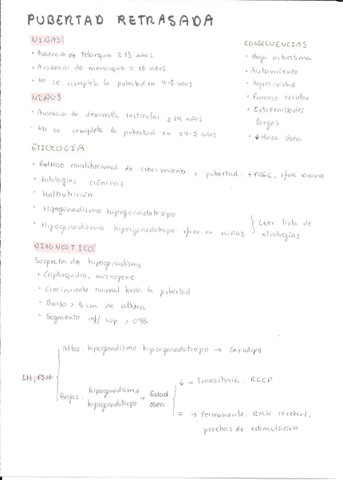 PUBERTAD RETRASADA
NIÑAS
• Ausencia de telarquia ≥ 13 años
• Ausencia de menarquia > 15 años
• No se completa la pubertad en 4-5 años
NIÑOS
• Ausencia de desarrollo testicular ≥ 14 años
• No se completa la pubertad en > 4-5 años
CONSECUENCIAS
• Baja autoestima
• Aislamiento
• Agresividad
• Fracaso escolar
• Extremidades largas
• ↓ Masa ósea
ETIOLOGÍA
• Retraso constitucional de crecimiento y pubertad: + FREC,
• Patologías crónicas
• Malnutrición
• Hipogonadismo hipogonadotropo
• Hipogonadismo hipergonadotropo: + frec en niñas
} Leer lista de etiologías
DIAGNÓSTICO
Sospecha de hipogonadismo
• Criptorquidia, micropene
• Crecimiento normal hasta la pubertad
• Brazo > 5 cm de altura
• Segmento inf/ sup > 0'
LH, FSH
Altas: hipogonadismo hipergonadotropo → Cariotipo
Bajas: hipogonadismo hipogonadotropo → Edad ósea
↓ → Transitorio: RCCP
= → Permanente: RMN cerebral, pruebas de estimulación